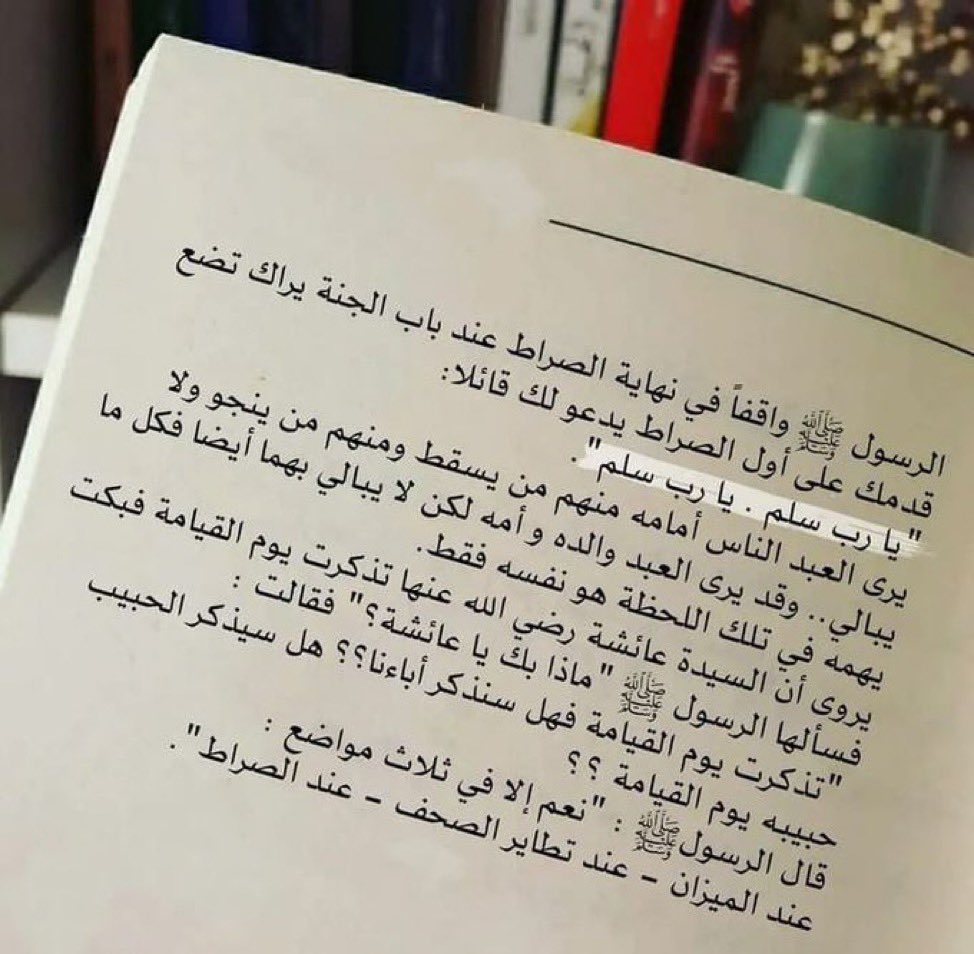 الرسول ﷺ واقفاً في نهاية الصراط عند باب الجنة يراك تضع
قدمك على أول الصراط يدعو لك قائلا:
"يا رب سلم . يا رب سلم" .
يرى العبد الناس أمامه منهم من يسقط ومنهم من ينجو ولا
يبالي.. وقد يرى العبد والده و أمه لكن لا يبالي بهما أيضا فكل ما
يهمه في تلك اللحظة هو نفسه فقط.
يروى أن السيدة عائشة رضي الله عنها تذكرت يوم القيامة فبكت
فسألها الرسول ﷺ "ماذا بك يا عائشة؟" فقالت :
"تذكرت يوم القيامة فهل سنذكر أباءنا؟؟ هل سيذكر الحبيب
حبيبه يوم القيامة ؟؟
قال الرسول ﷺ : "نعم إلا في ثلاث مواضع :
عند الميزان - عند تطاير الصحف - عند الصراط" .